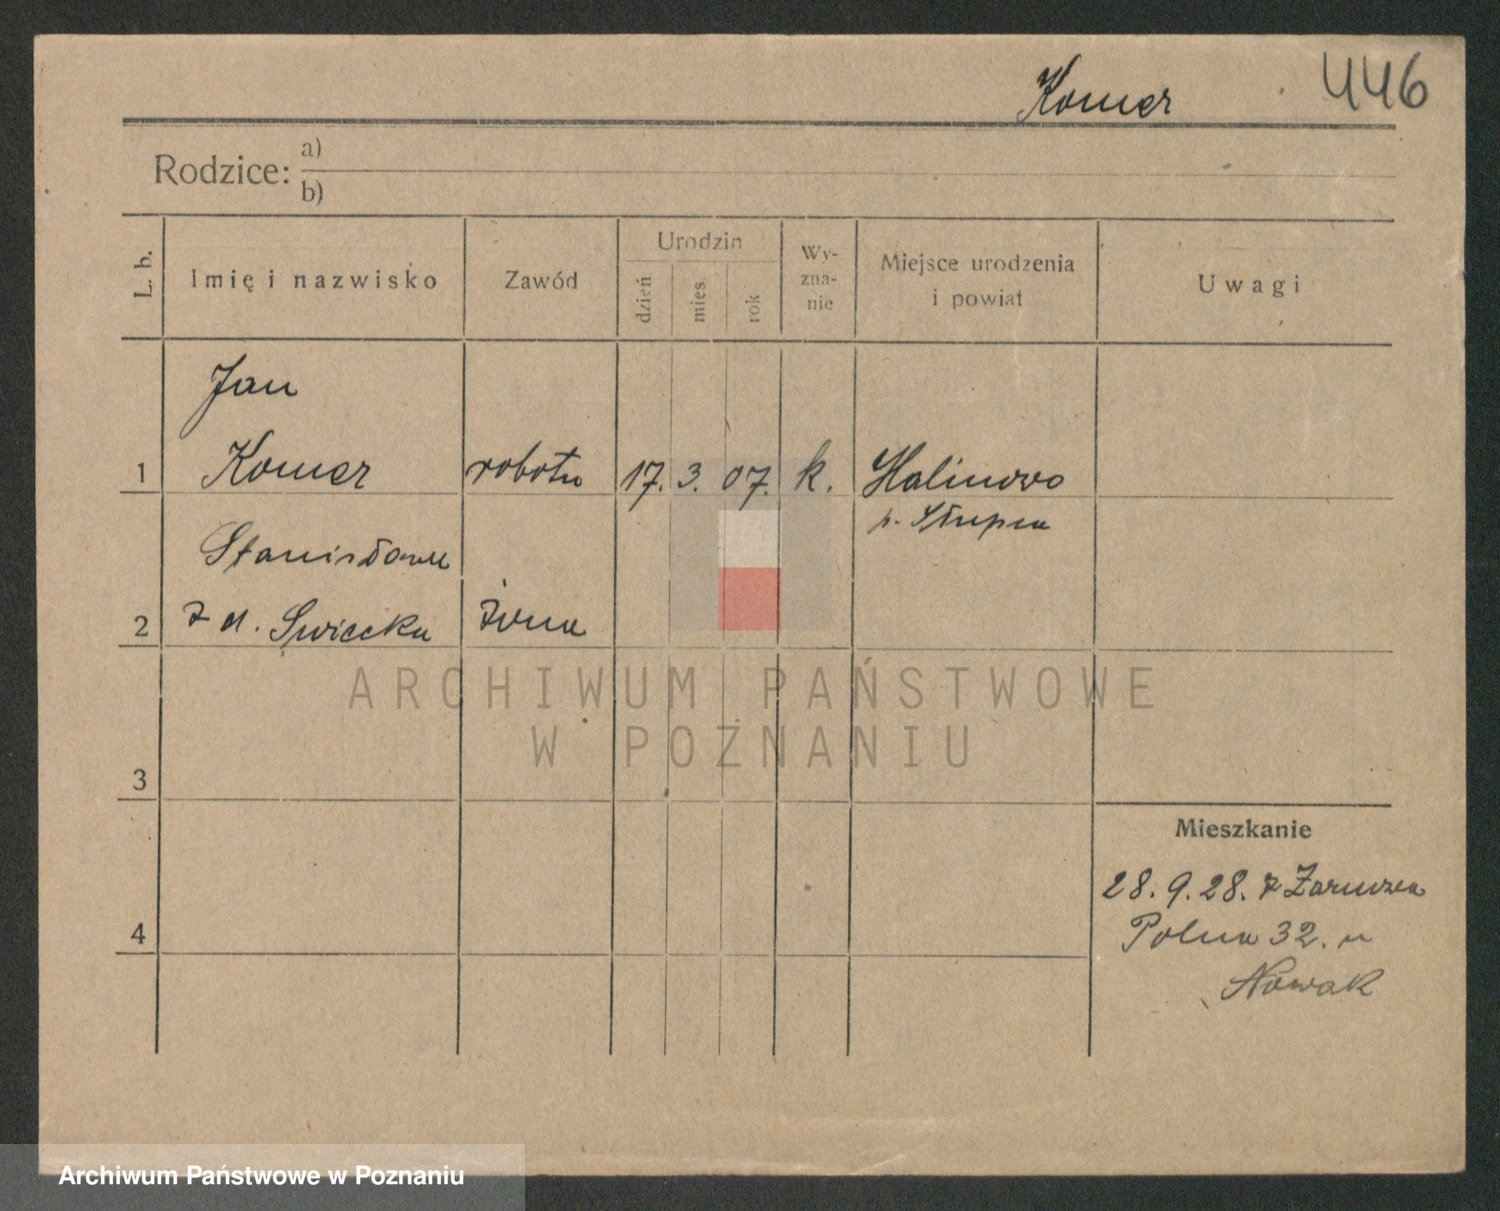 Komer 446
Rodzice: a)
b)
L. b. Imię i nazwisko Zawód Urodzin dzień mies. rok Wy-zna-nie Miejsce urodzenia i powiat Uwagi
Jan
1 Komer robotn 17. 3. 07. k. Halinowo
p. Słupca
Stanisława
2 z d. Swięcka żona
ARCHIWUM PAŃSTWOWE
W POZNANIU
3
Mieszkanie
28.9.28. z
4 Polna 32. u
Nowak
Archiwum Państwowe w Poznaniu